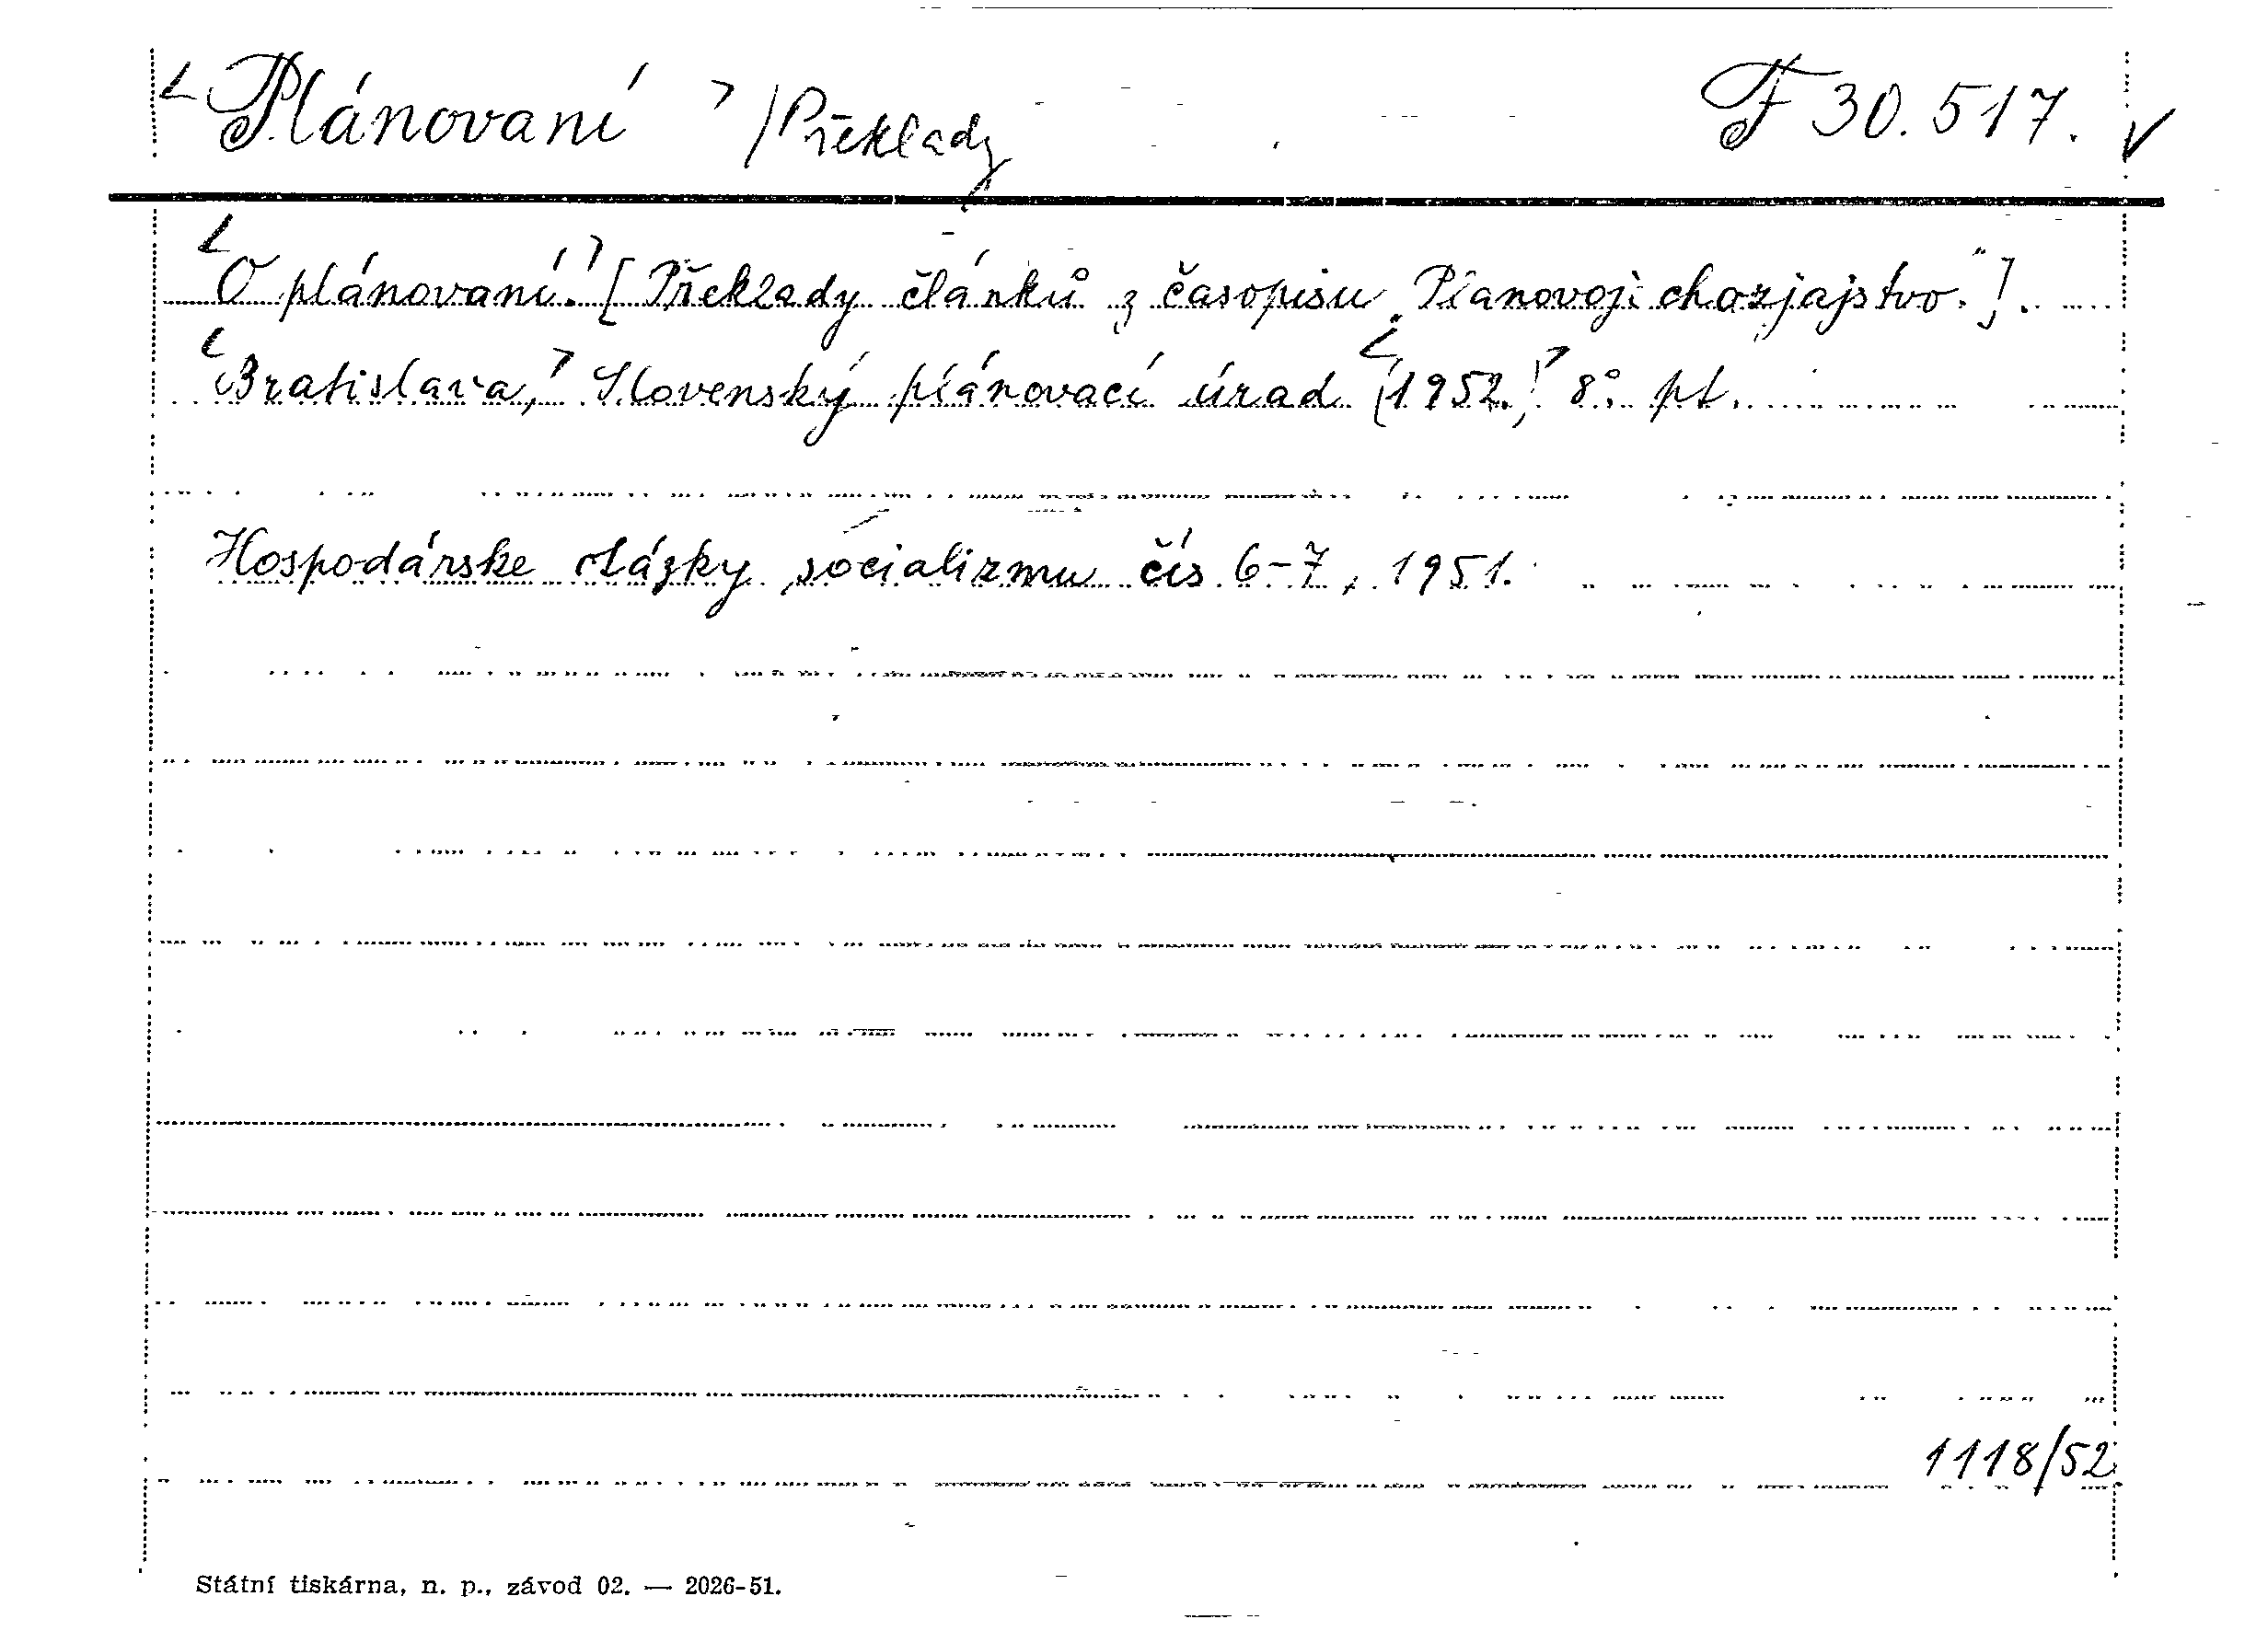 Plánovaní /Překlady F 30.517.
O plánovaní. [Překlady článků z časopisu „Planovoje chozjajstvo."].
Bratislava, Slovenský plánovací úrad (1952.) 8° pt.
Hospodárske otázky socializmu čís 6-7, 1951.
1118/52
Státní tiskárna, n. p., závod 02. — 2026-51.